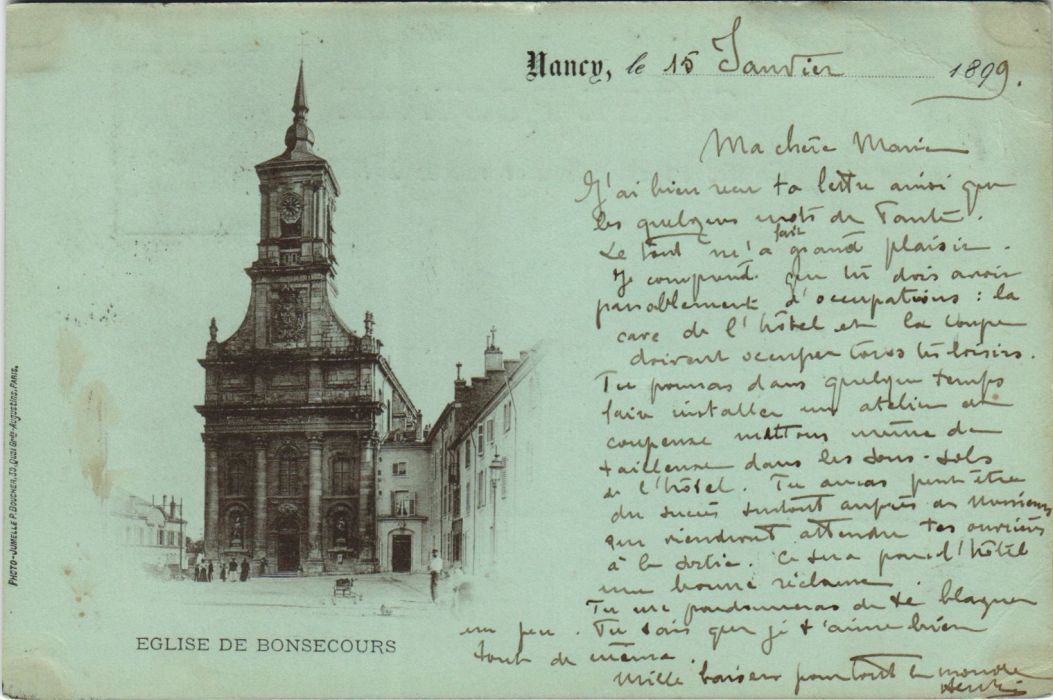 Nancy, le 15 Janvier 1899.
Ma chère Marie
J'ai bien reçu ta lettre ainsi que
les quelques mots de Tante.
Le tout m'a fait grand plaisir.
Je comprends que tu dois avoir
passablement d'occupations : la
cave de l'hôtel et la coupe
doivent occuper tous tes loisirs.
Tu pourras dans quelque temps
faire installer un atelier de
coupeuse mettons même de
tailleuse dans les sous-sols
de l'hôtel. Tu auras peut être
du succès surtout auprès de Messieurs
qui viendront attendre tes ouvrières
à la sortie. Ce sera pour l'hôtel
une bonne réclame
Tu me pardonneras de te blaguer
un peu. Tu sais que je t'aime bien
tout de même.
Mille baisers pour tout le monde
Henri
EGLISE DE BONSECOURS
PHOTO-JUMELLE P. BOUCHER, 35, Quai Gds-Augustins, PARIS.